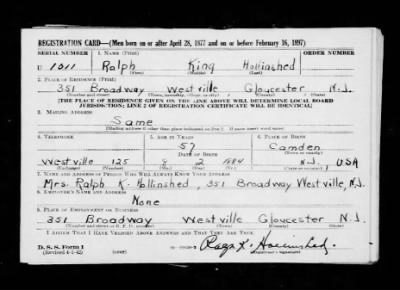 REGISTRATION CARD—(Men born on or after April 28, 1877 and on or before February 16, 1897)
SERIAL NUMBER 1. NAME (Print) ORDER NUMBER
U 1011 Ralph King Hollinshed
(First) (Middle) (Last)
2. PLACE OF RESIDENCE (Print)
351 Broadway Westville Gloucester N.J.
(Number and street) (Town, township, village, or city) (County) (State)
[THE PLACE OF RESIDENCE GIVEN ON THE LINE ABOVE WILL DETERMINE LOCAL BOARD
JURISDICTION; LINE 2 OF REGISTRATION CERTIFICATE WILL BE IDENTICAL]
3. MAILING ADDRESS
Same
[Mailing address if other than place indicated on line 2. If same insert word same]
4. TELEPHONE 5. AGE IN YEARS 6. PLACE OF BIRTH
57 Camden
DATE OF BIRTH (Town or county)
Westville 125 8 2 1884 N.J. USA
(Exchange) (Number) (Mo.) (Day) (Yr.) (State or country)
7. NAME AND ADDRESS OF PERSON WHO WILL ALWAYS KNOW YOUR ADDRESS
Mrs. Ralph K. Hollinshed, 351 Broadway Westville, N.J.
8. EMPLOYER'S NAME AND ADDRESS
None
9. PLACE OF EMPLOYMENT OR BUSINESS
351 Broadway Westville Gloucester N.J.
(Number and street or R. F. D. number) (Town) (County) (State)
I AFFIRM THAT I HAVE VERIFIED ABOVE ANSWERS AND THAT THEY ARE TRUE.
D. S. S. Form 1
(Revised 4-1-42) (over)
Ralph K. Hollinshed